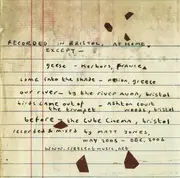 RECORDED IN BRISTOL, AT HOME,
EXCEPT -
geese - morbars, france
come into the shade - aegion, greece
our river - by the river avon, bristol
birds came out of - ashton court
the trumpet woods, bristol
before - the Cube Cinema, bristol
recorded & mixed by MATT JONES,
MAY 2004 - DEC. 2006
www.crescentmusic.net